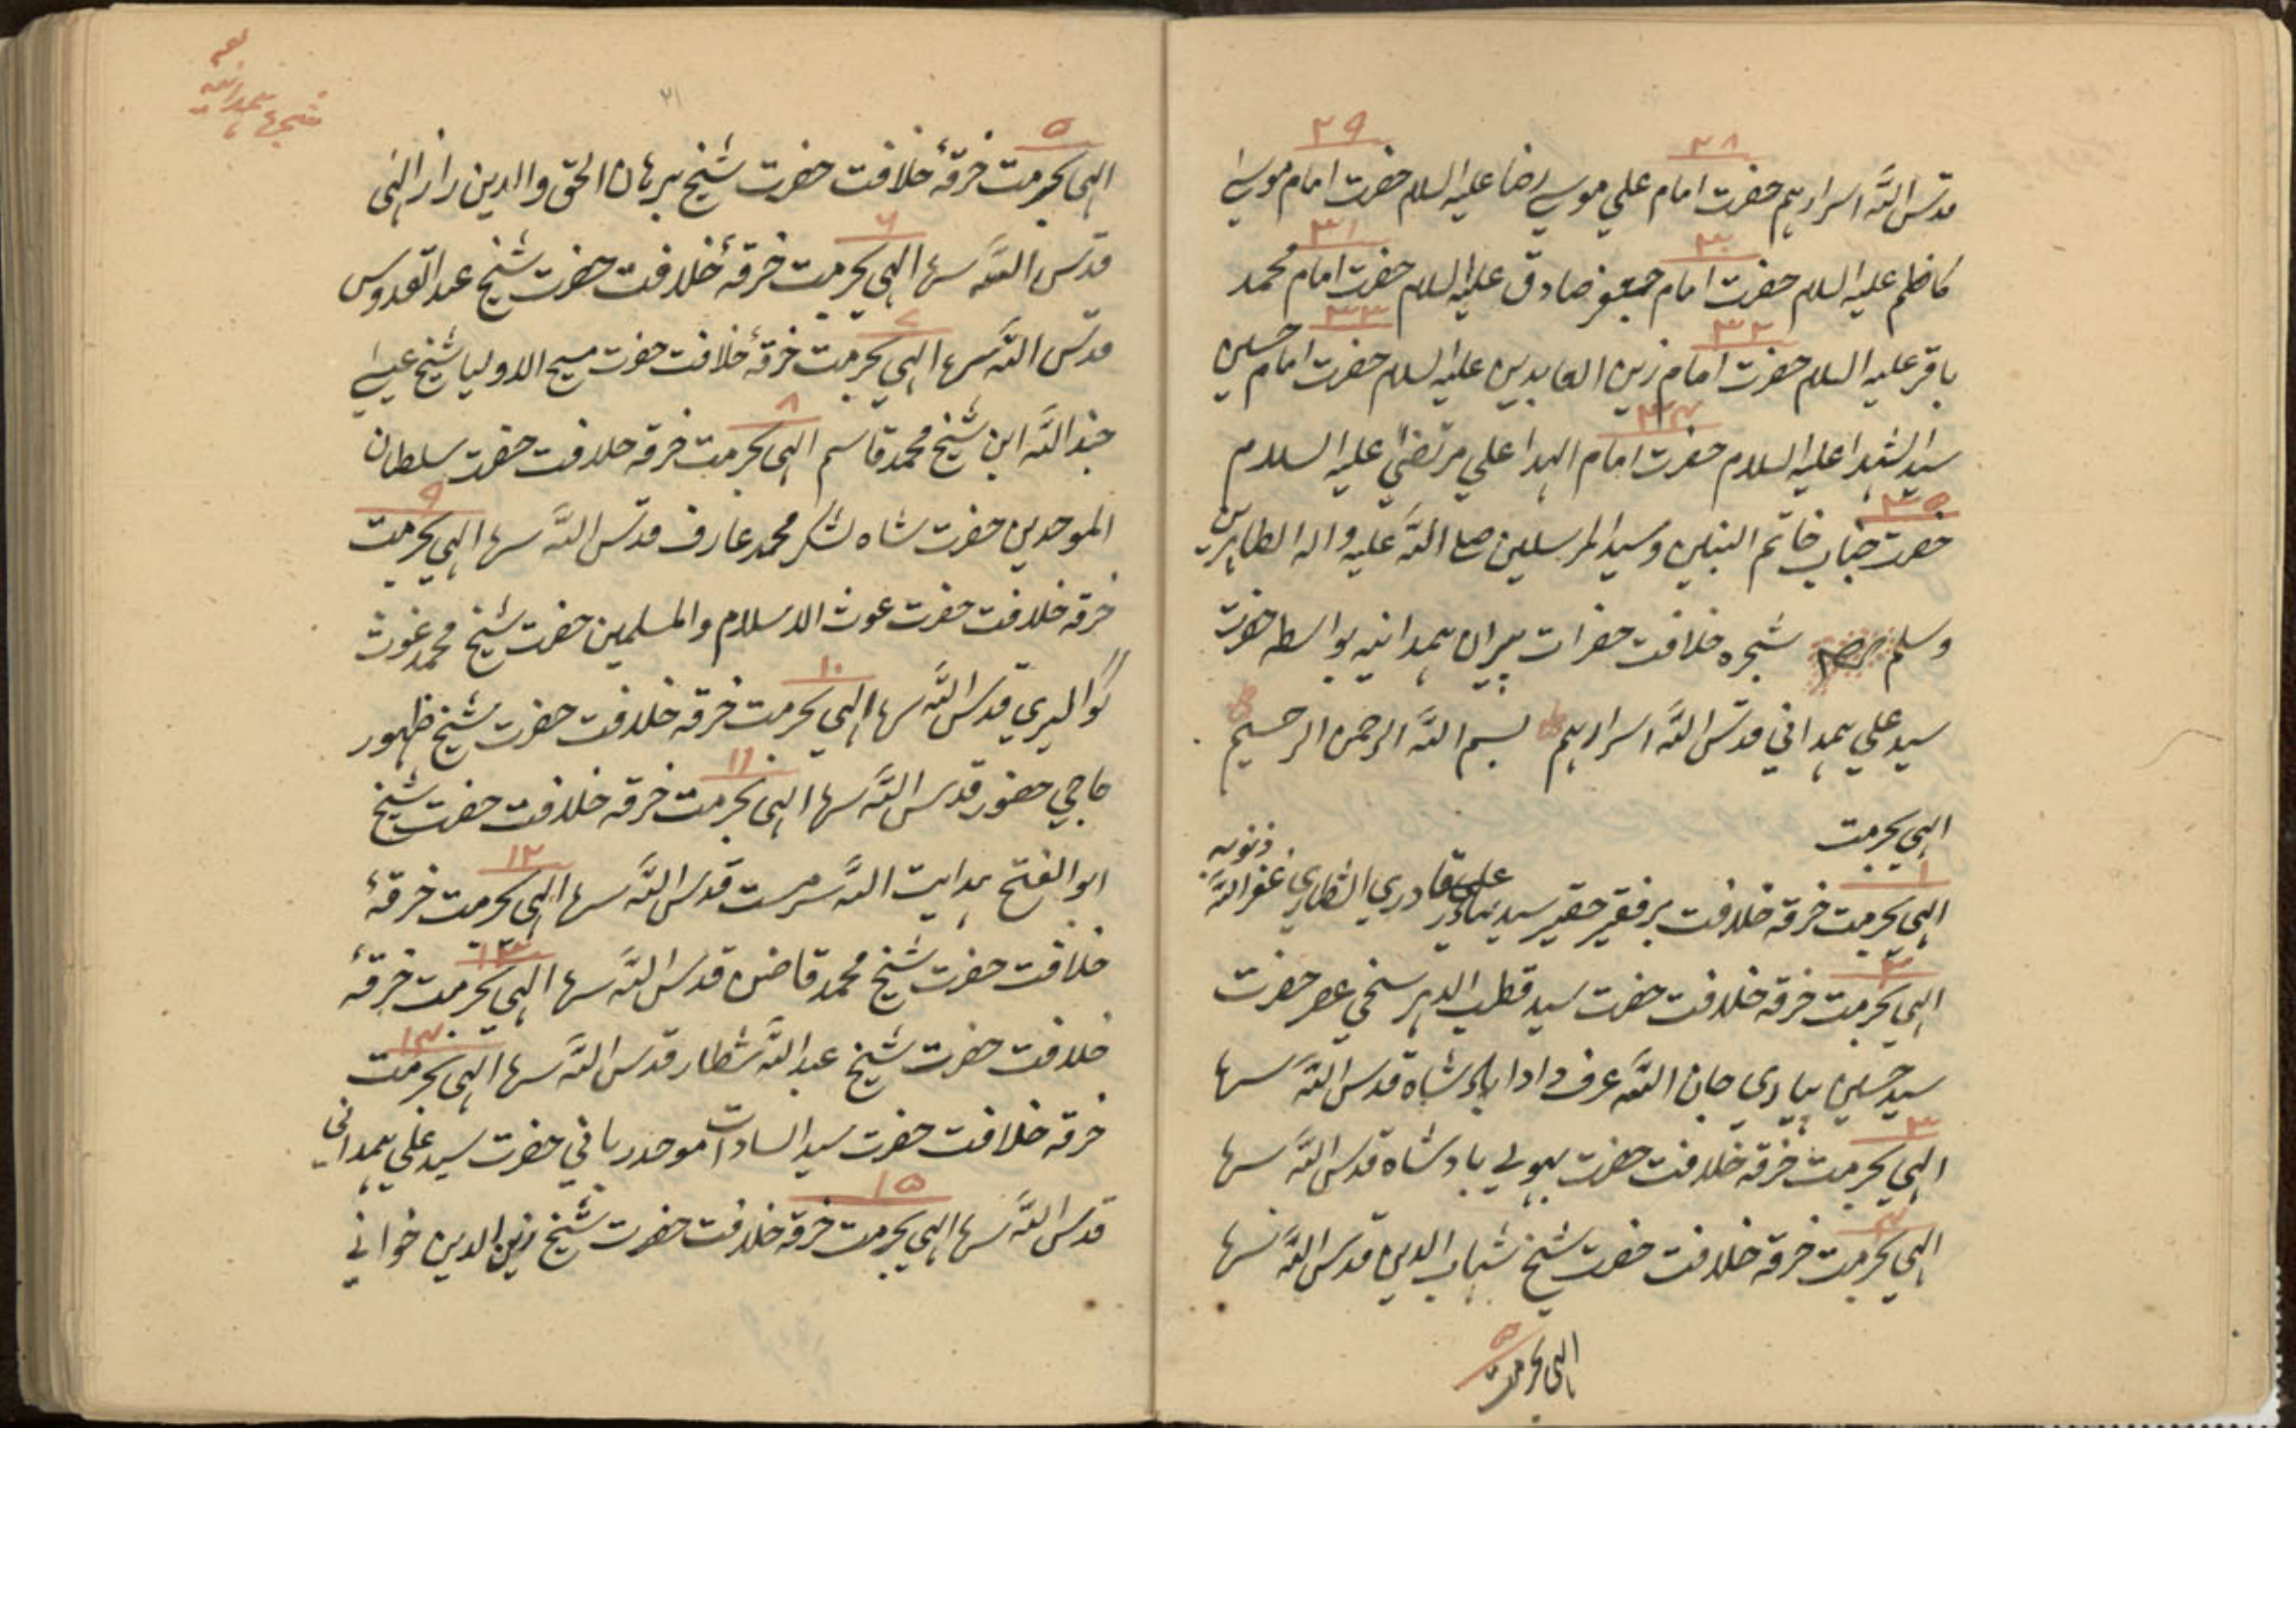 ۲۸ ۲۹
قدس الله اسرارہم حضرت امام علي موسي رضا عليه السلام حضرت امام موسي
۳۰ ۳۱
کاظم عليه السلام حضرت امام جعفر صادق عليه السلام حضرت امام محمد
۳۲ ۳۳
باقر عليه السلام حضرت امام زين العابدين عليه السلام حضرت امام حسين
۳۴
سيد الشہدا عليه السلام حضرت امام الہدا علي مرتضي عليه السلام
۳۵
حضرت جناب خاتم النبيين وسيد المرسلين صلي الله عليه واله الطاہرين
وسلم شجره خلافت حضرات پيران ہمدانيه بواسطه حضرت
سيد علي ہمداني قدس الله اسرارہم بسم الله الرحمن الرحيم
الہي بحرمت
۱
الہي بحرمت خرقه خلافت بر فقير حقير سيد بہادر علي قادري الشطاري غفر الله ذنوبه
۲
الہي بحرمت خرقه خلافت حضرت سيد قطب الدہر سخي عصر حضرت
سيد حسين پيادي جان الله عرف دادا بادشاه قدس الله سرہا
۳
الہي بحرمت خرقه خلافت حضرت بہولي بادشاه قدس الله سرہا
۴
الہي بحرمت خرقه خلافت حضرت شيخ شہاب الدين قدس الله سرہا
۵
الہي بحرمت
شجرہا ہمدانيه
۲۱
۵
الہي بحرمت خرقهٔ خلافت حضرت شيخ برہان الحق والدين راز الہي
۶
قدس الله سرہا الہي بحرمت خرقهٔ خلافت حضرت شيخ عبد القدوس
۷
قدس الله سرہا الہي بحرمت خرقهٔ خلافت حضرت مسيح الاوليا شيخ عيسي
۸
جند الله ابن شيخ محمد قاسم الہي بحرمت خرقه خلافت حضرت سلطان
۹
الموحدين حضرت شاه لشکر محمد عارف قدس الله سرہا الہي بحرمت
خرقه خلافت حضرت غوث الاسلام والمسلمين حضرت شيخ محمد غوث
۱۰
گواليري قدس الله سرہا الہي بحرمت خرقه خلافت حضرت شيخ ظہور
۱۱
حاجي حضور قدس الله سرہا الہي بحرمت خرقه خلافت حضرت شيخ
۱۲
ابو الفتح ہدايت الله سرمست قدس الله سرہا الہي بحرمت خرقهٔ
۱۳
خلافت حضرت شيخ محمد قاضن قدس الله سرہا الہي بحرمت خرقهٔ
۱۴
خلافت حضرت شيخ عبد الله شطار قدس الله سرہا الہي بحرمت
خرقه خلافت حضرت سيد السادات موحد رباني حضرت سيد علي ہمداني
۱۵
قدس الله سرہا الہي بحرمت خرقه خلافت حضرت شيخ زين الدين خوافي